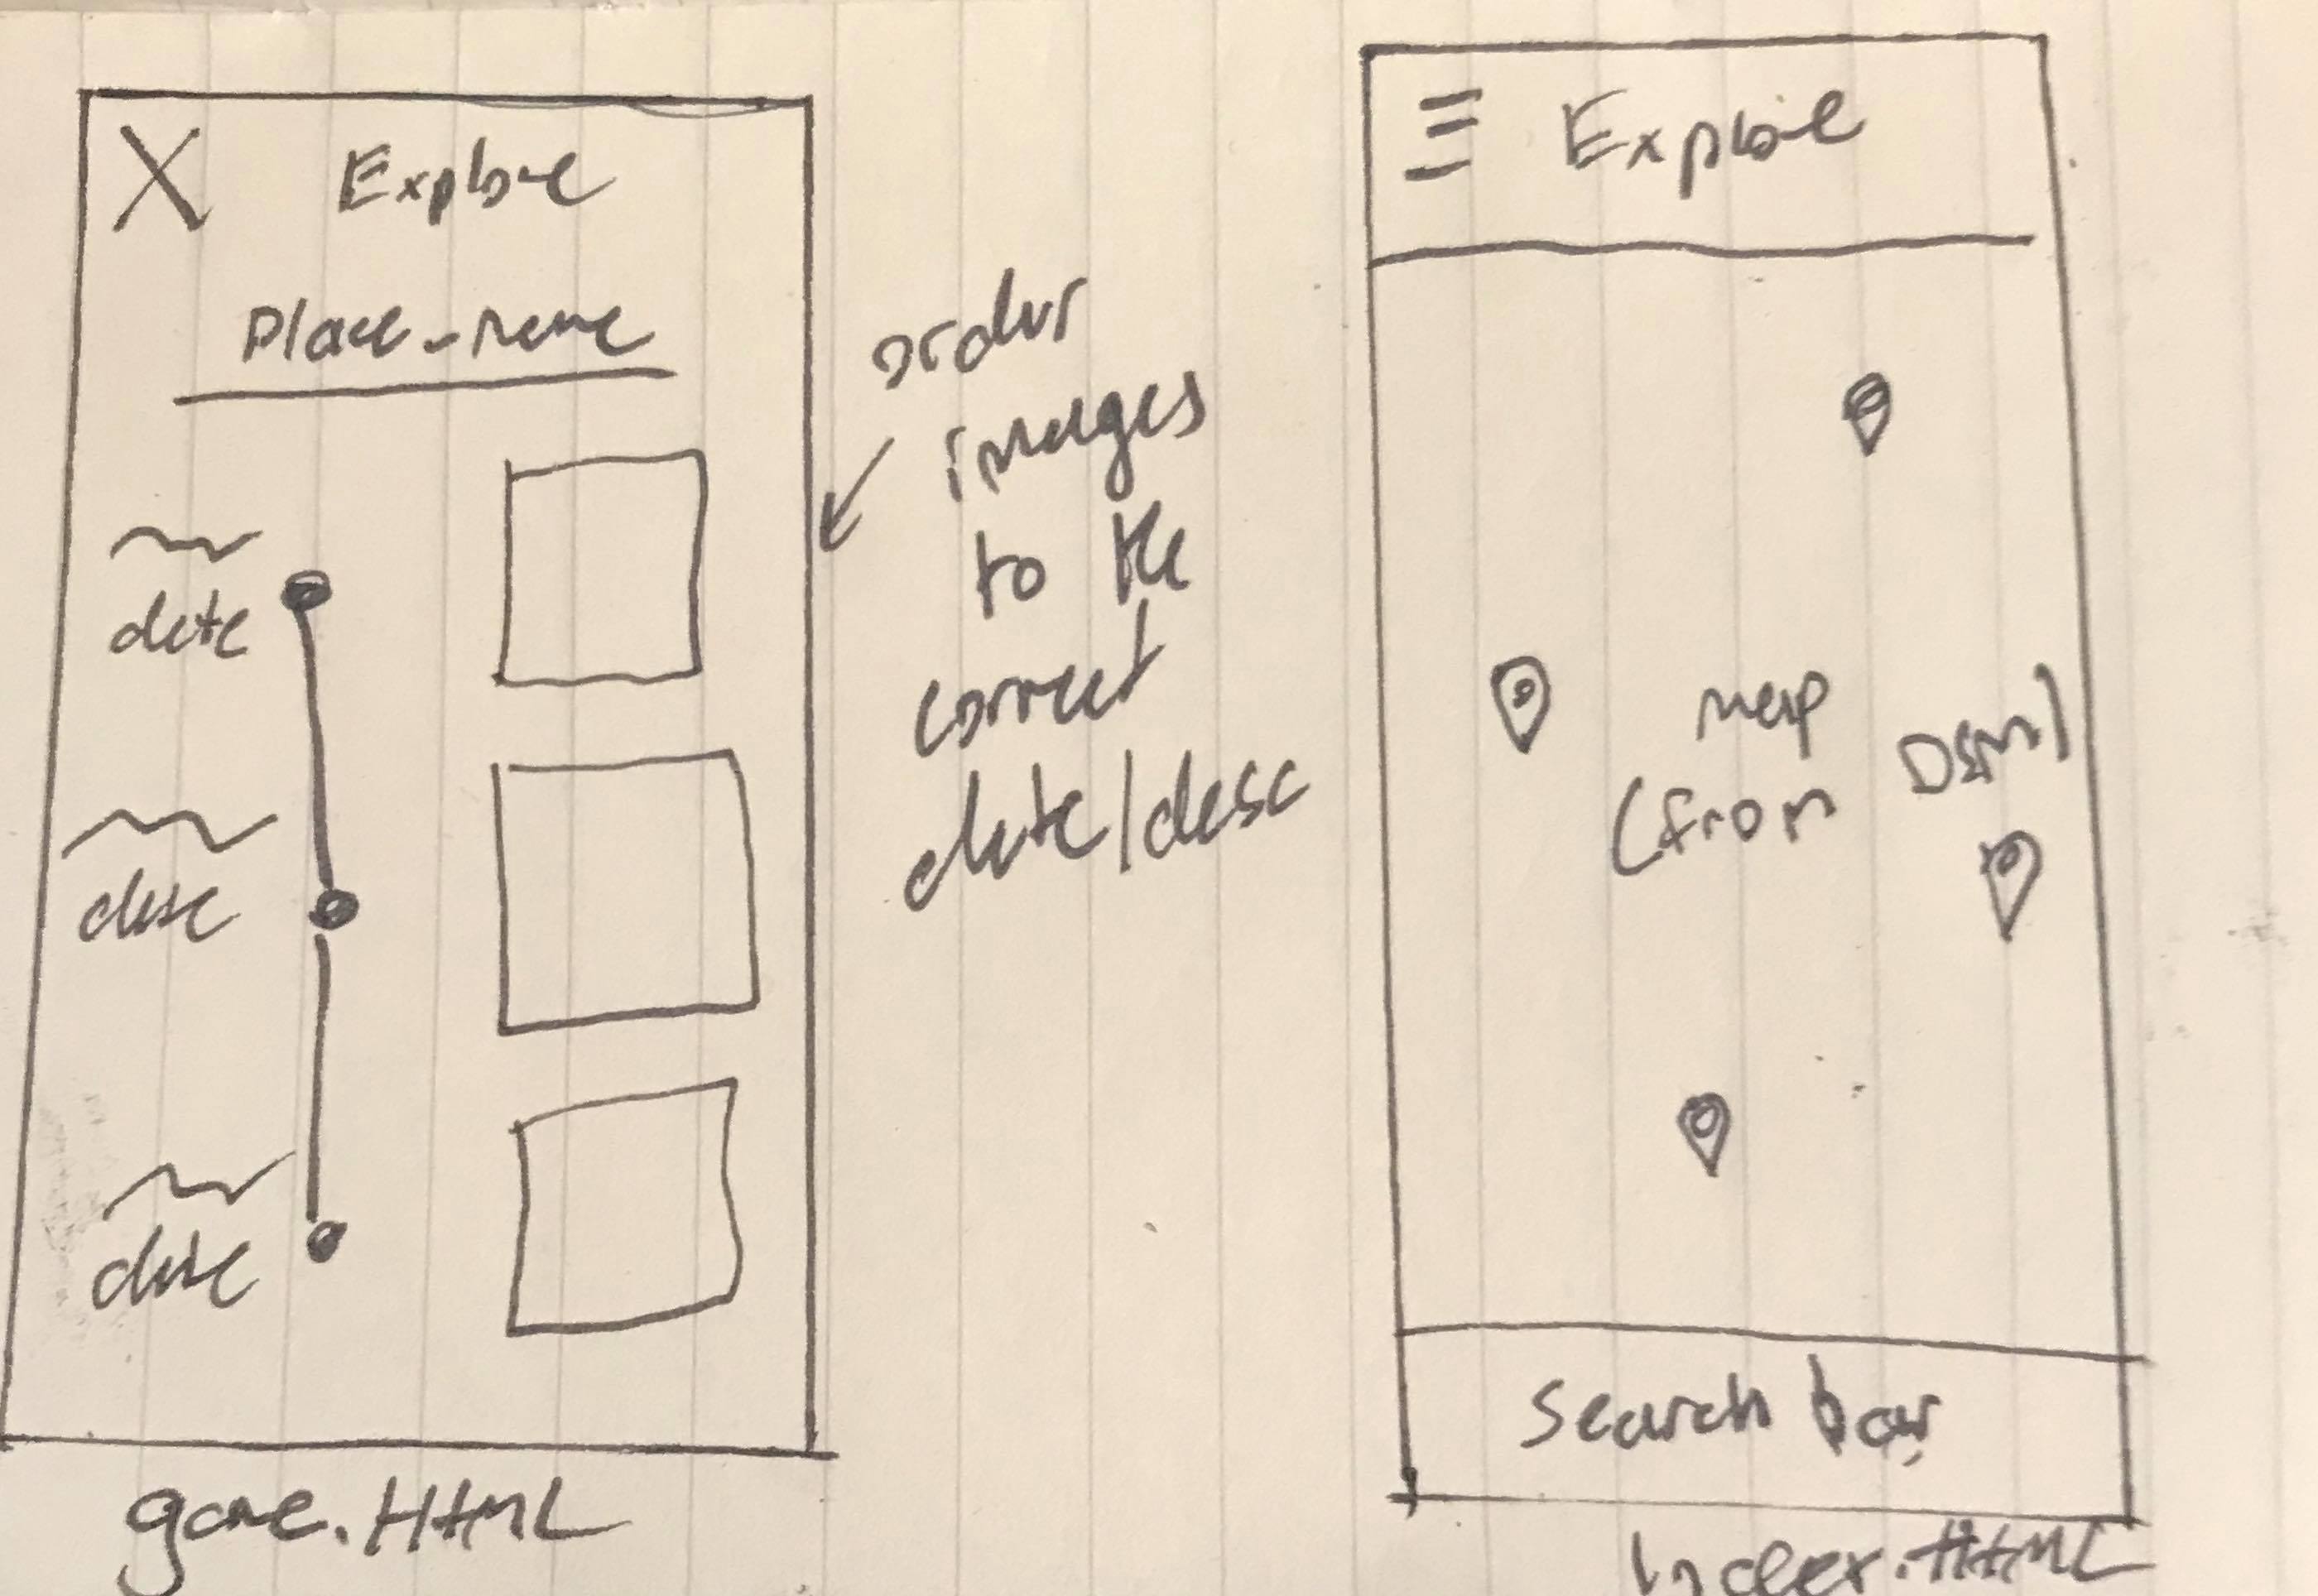 X Explore
Place_name
date
desc
date
game.HTML
order
images
to the
correct
date/desc
Explore
map
(from OSM)
Search bar
index.HTML